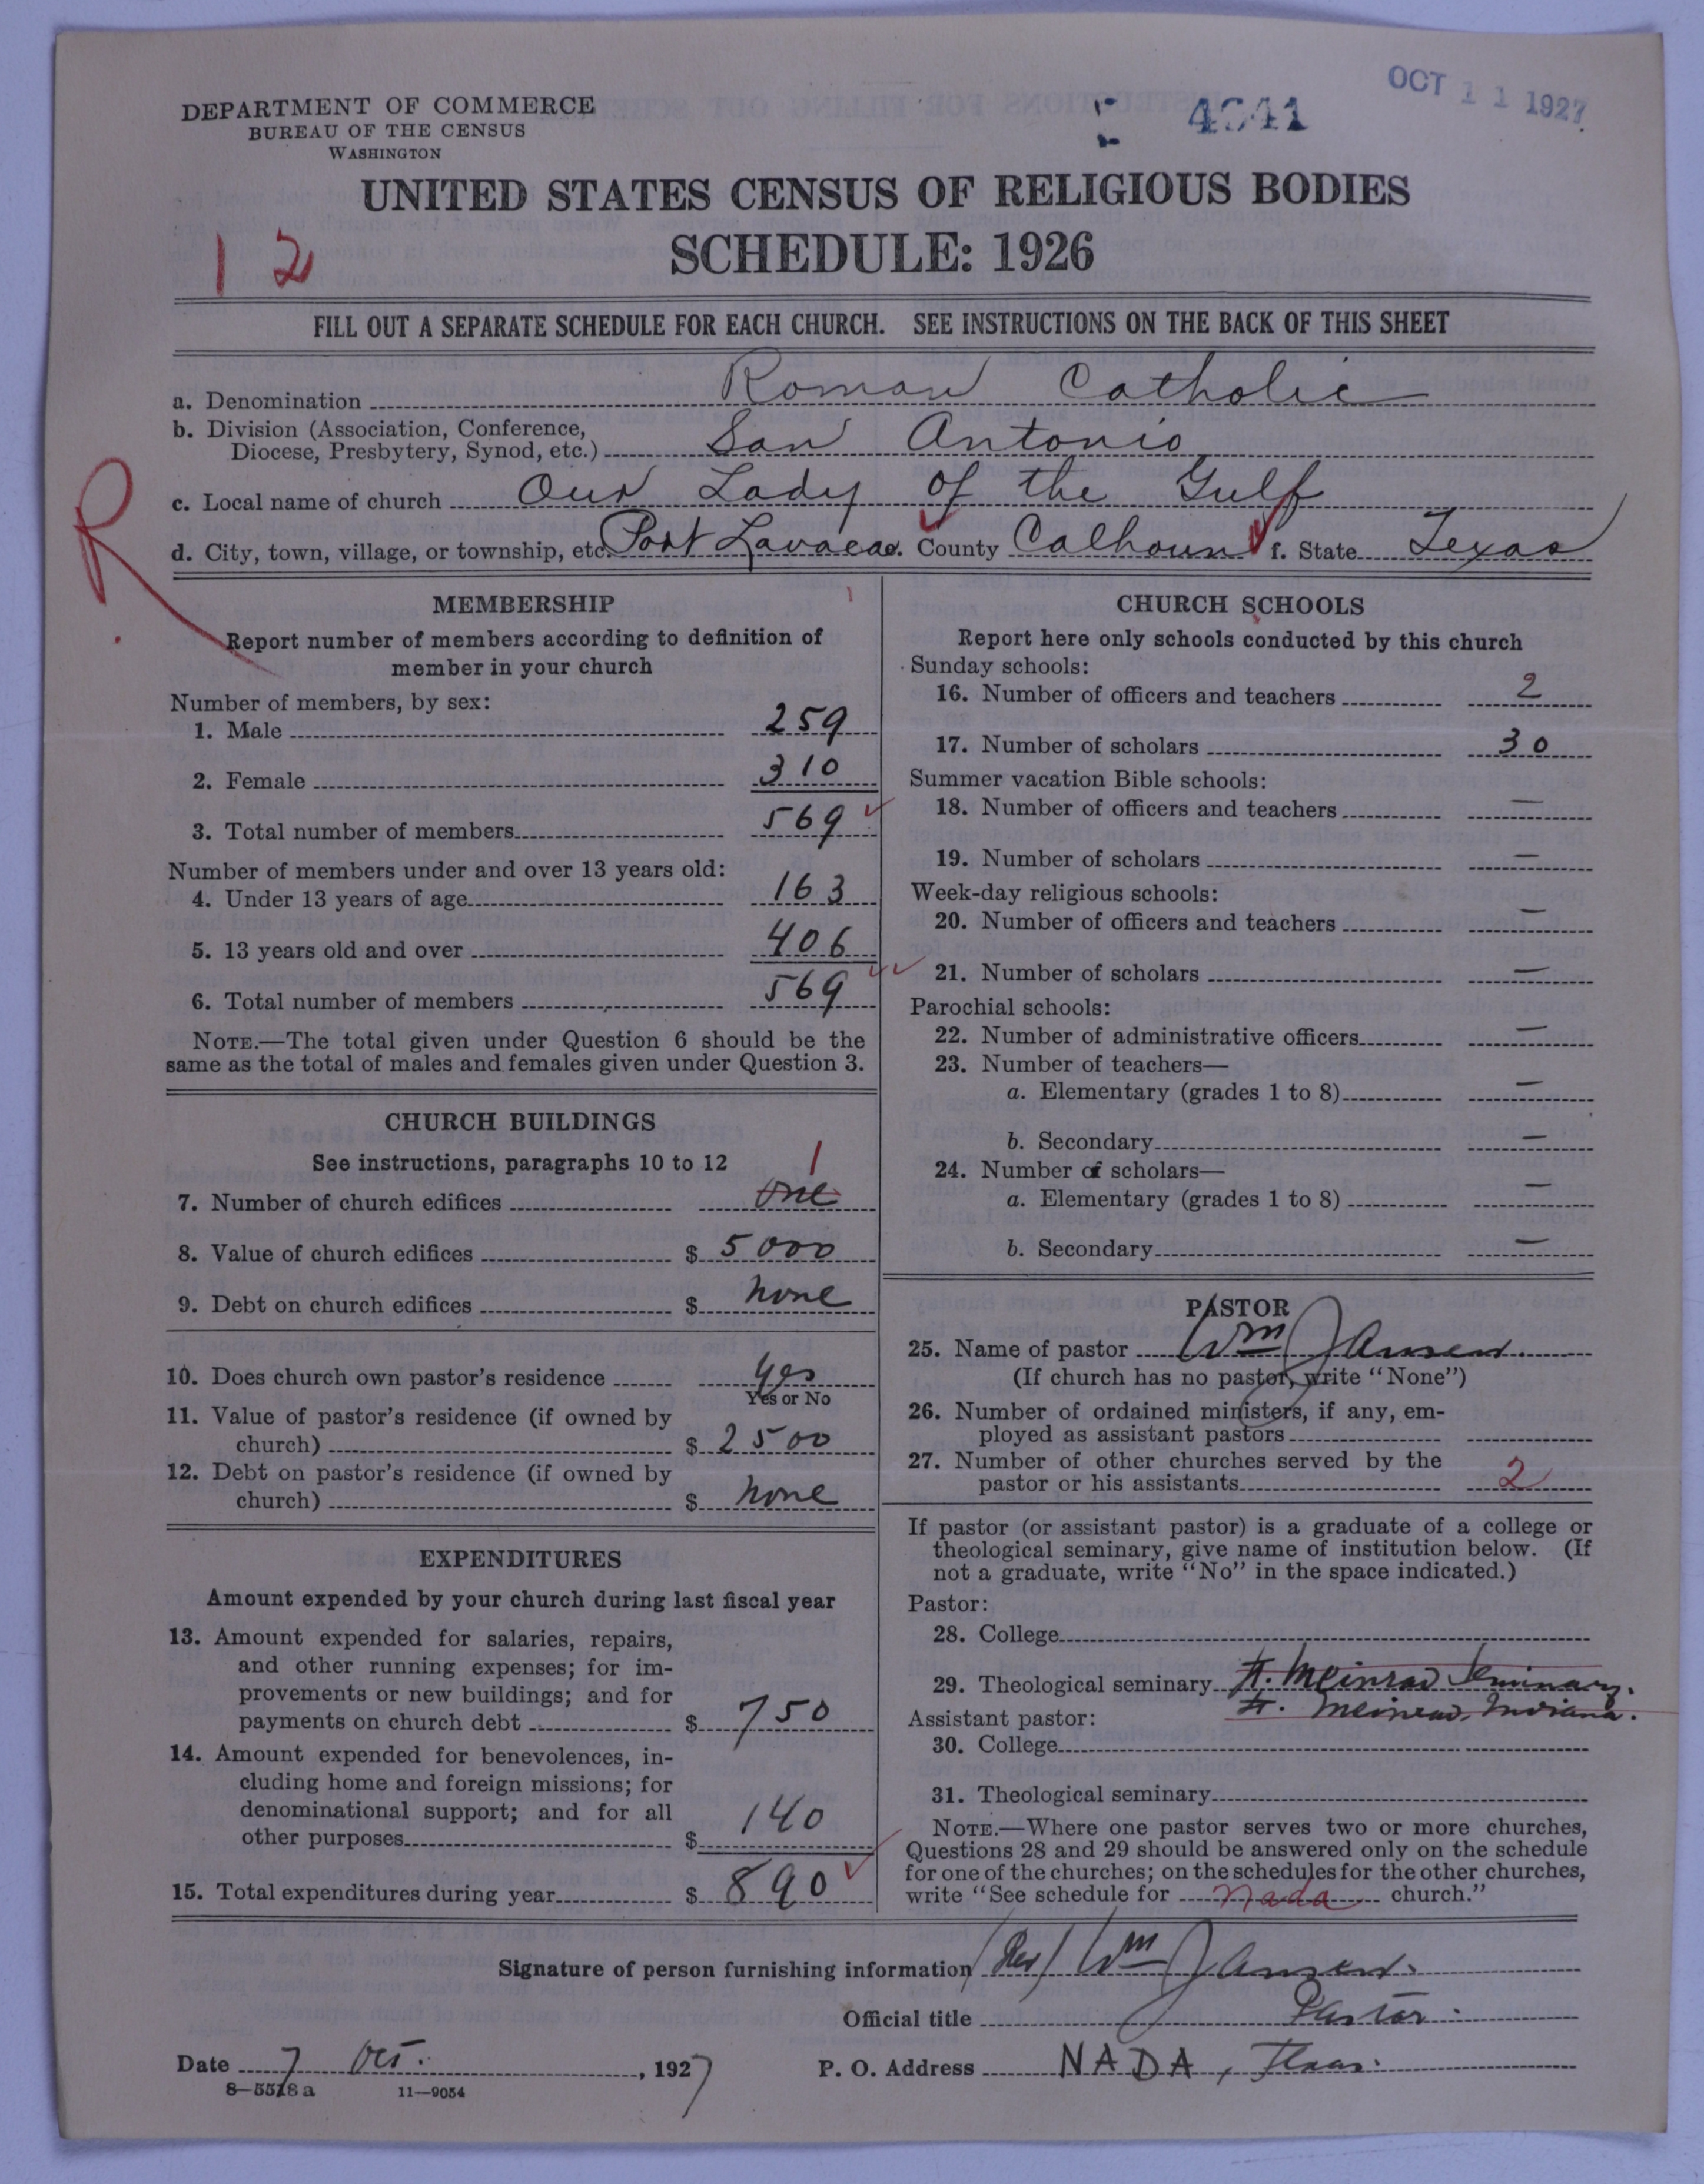 OCT 11 1927
4041
DEPARTMENT OF COMMERCE
BUREAU OF THE CENSUS
WASHINGTON
UNITED STATES CENSUS OF RELIGIOUS BODIES
SCHEDULE: 1926
1 2
FILL OUT A SEPARATE SCHEDULE FOR EACH CHURCH. SEE INSTRUCTIONS ON THE BACK OF THIS SHEET
a. Denomination Roman Catholic
b. Division (Association, Conference,
Diocese, Presbytery, Synod, etc.) San Antonio
c. Local name of church Our Lady of the Gulf
R
d. City, town, village, or township, etc. Port Lavaca e. County Calhoun f. State Texas
MEMBERSHIP
Report number of members according to definition of
member in your church
Number of members, by sex:
1. Male 259
2. Female 310
3. Total number of members 569
Number of members under and over 13 years old:
4. Under 13 years of age 163
5. 13 years old and over 406
6. Total number of members 569
NOTE.—The total given under Question 6 should be the
same as the total of males and females given under Question 3.
CHURCH BUILDINGS
See instructions, paragraphs 10 to 12
1
7. Number of church edifices one
8. Value of church edifices $ 5000
9. Debt on church edifices $ none
10. Does church own pastor's residence yes
Yes or No
11. Value of pastor's residence (if owned by
church) $ 2500
12. Debt on pastor's residence (if owned by
church) $ none
EXPENDITURES
Amount expended by your church during last fiscal year
13. Amount expended for salaries, repairs,
and other running expenses; for im-
provements or new buildings; and for
payments on church debt $ 750
14. Amount expended for benevolences, in-
cluding home and foreign missions; for
denominational support; and for all
other purposes $ 140
15. Total expenditures during year $ 890
CHURCH SCHOOLS
Report here only schools conducted by this church
Sunday schools:
16. Number of officers and teachers 2
17. Number of scholars 30
Summer vacation Bible schools:
18. Number of officers and teachers —
19. Number of scholars —
Week-day religious schools:
20. Number of officers and teachers —
21. Number of scholars —
Parochial schools:
22. Number of administrative officers —
23. Number of teachers—
a. Elementary (grades 1 to 8) —
b. Secondary —
24. Number of scholars—
a. Elementary (grades 1 to 8) —
b. Secondary —
PASTOR
25. Name of pastor Wm Jansen
(If church has no pastor, write "None")
26. Number of ordained ministers, if any, em-
ployed as assistant pastors
27. Number of other churches served by the
pastor or his assistants 2
If pastor (or assistant pastor) is a graduate of a college or
theological seminary, give name of institution below. (If
not a graduate, write "No" in the space indicated.)
Pastor:
28. College
29. Theological seminary St. Meinrad Seminary.
St. Meinrad, Indiana.
Assistant pastor:
30. College
31. Theological seminary
NOTE.—Where one pastor serves two or more churches,
Questions 28 and 29 should be answered only on the schedule
for one of the churches; on the schedules for the other churches,
write "See schedule for Nada church."
Signature of person furnishing information (Rev) Wm Jansen.
Official title Pastor.
Date 7 Oct., 1927 P. O. Address NADA, Texas.
8—5518 a 11—9054